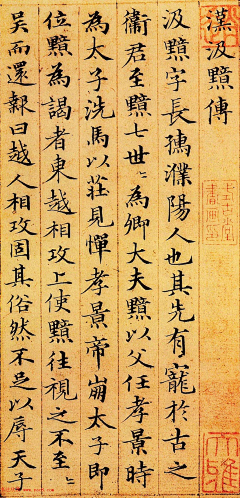 漢汲黯傳
汲黯字長孺濮陽人也其先有寵於古之
衛君至黯七世〻為卿大夫黯以父任孝景時
為太子洗馬以莊見憚孝景帝崩太子即
位黯為謁者東越相攻上使黯往視之不至〻
吳而還報曰越人相攻固其俗然不足以辱天子